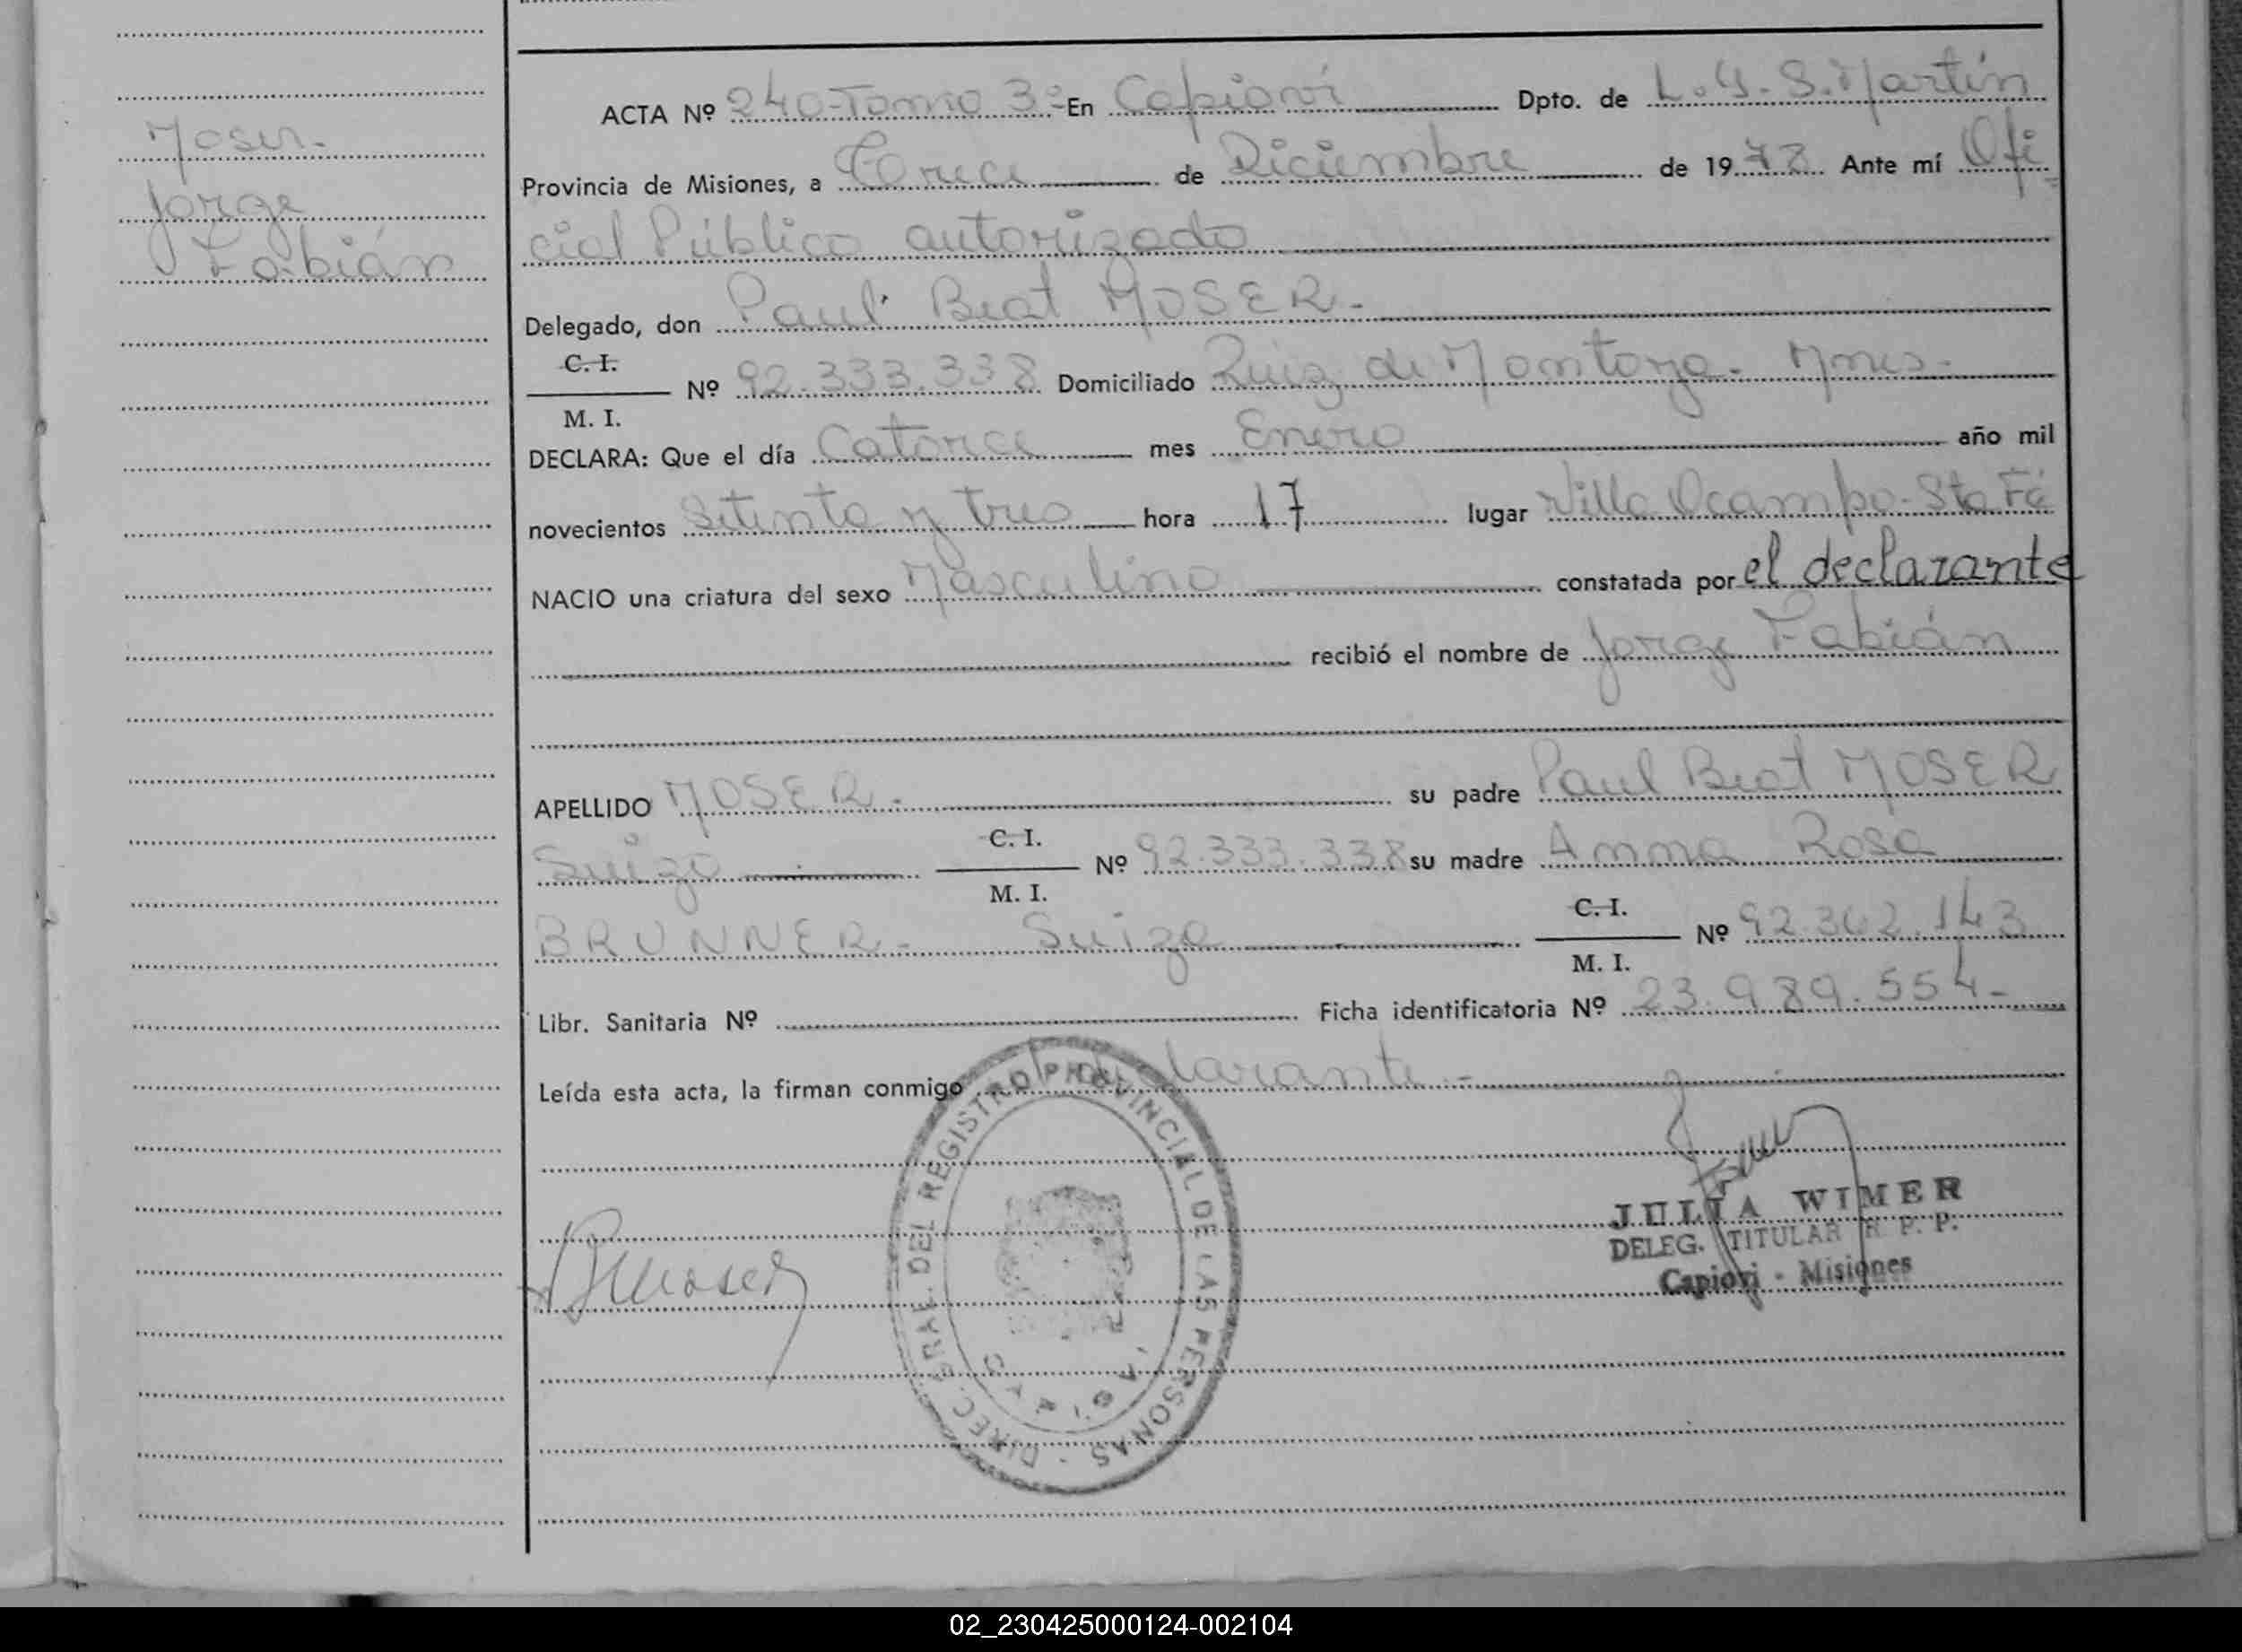 Moser.
Jorge
Fabián
ACTA Nº 240-Tomo 3º En Capioví Dpto. de L.G.S. Martín
Provincia de Misiones, a de Diciembre de 1978 Ante mí Ofi
cial Público autorizado
Delegado, don Paul Beat MOSER.
C. I.
M. I.
Nº 92.333.338 Domiciliado Ruiz de Montoya. Mnes.
DECLARA: Que el día Catorce mes Enero año mil
novecientos Setenta y tres hora 17 lugar Villa Ocampo-Sta Fé
NACIO una criatura del sexo Masculino constatada por el declarante
recibió el nombre de Jorge Fabián
APELLIDO MOSER. su padre Paul Beat MOSER
Suizo C. I.
M. I.
Nº 92.333.338 su madre Anna Rosa
BRUNNER. Suiza C. I.
M. I.
Nº 92.362.143
Libr. Sanitaria Nº Ficha identificatoria Nº 23.989.554-
Leída esta acta, la firman conmigo declarante.-
DIREC. GRAL. DEL REGISTRO PROVINCIAL DE LAS PERSONAS
Moser
JULIA WIMER
DELEG. TITULAR R. P. P.
Capiovi - Misiones
02_230425000124-002104